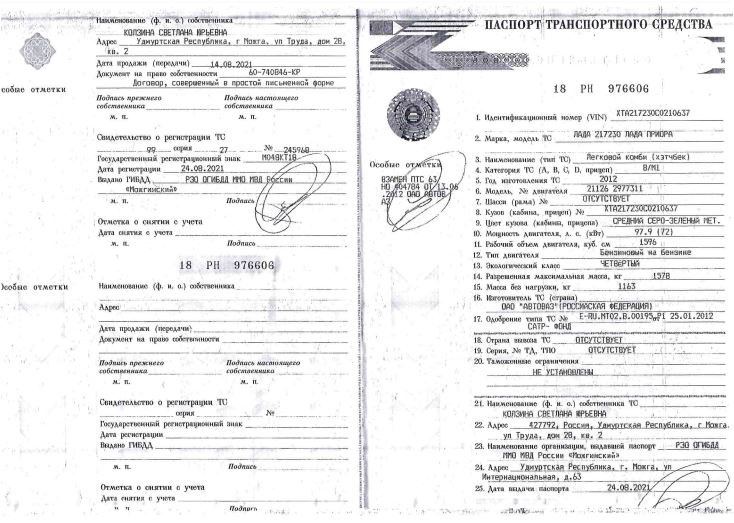 Наименование (ф. и. о.) собственника
КОЛЗИНА СВЕТЛАНА ЮРЬЕВНА
Адрес Удмуртская Республика, г Можга, ул Труда, дом 28,
кв. 2
Дата продажи (передачи) 14.08.2021
Документ на право собственности 60-740846-КР
Договор, совершенный в простой письменной форме
собые отметки
Подпись прежнего собственника
Подпись настоящего собственника
м. п. м. п.
Свидетельство о регистрации ТС
99 серия 27 № 245968
Государственный регистрационный знак М048КТ18
Дата регистрации 24.08.2021
Выдано ГИБДД РЭО ОГИБДД ММО МВД России
«Можгинский»
м. п. Подпись
Отметка о снятии с учета
Дата снятия с учета
м. п. Подпись
18 РН 976606
Особые отметки
Наименование (ф. и. о.) собственника
Адрес
Дата продажи (передачи)
Документ на право собственности
Подпись прежнего собственника
Подпись настоящего собственника
м. п. м. п.
Свидетельство о регистрации ТС
серия №
Государственный регистрационный знак
Дата регистрации
Выдано ГИБДД
м. п. Подпись
Отметка о снятии с учета
Дата снятия с учета
ПАСПОРТ ТРАНСПОРТНОГО СРЕДСТВА
18 РН 976606
Особые отметки
ВЗАМЕН ПТС 63
НО 404784 ОТ 13.06
.2012 ОАО АВТОВ
АЗ
1. Идентификационный номер (VIN) XTA217230C0210637
2. Марка, модель ТС ЛАДА 217230 ЛАДА ПРИОРА
3. Наименование (тип ТС) Легковой комби (хэтчбек)
4. Категория ТС (А, В, С, D, прицеп) B/M1
5. Год изготовления ТС 2012
6. Модель, № двигателя 21126 2977311
7. Шасси (рама) № ОТСУТСТВУЕТ
8. Кузов (кабина, прицеп) № XTA217230C0210637
9. Цвет кузова (кабины, прицепа) СРЕДНИЙ СЕРО-ЗЕЛЕНЫЙ МЕТ.
10. Мощность двигателя, л. с. (кВт) 97.9 (72)
11. Рабочий объем двигателя, куб. см 1596
12. Тип двигателя Бензиновый на бензине
13. Экологический класс ЧЕТВЕРТЫЙ
14. Разрешенная максимальная масса, кг 1578
15. Масса без нагрузки, кг 1163
16. Изготовитель ТС (страна)
ОАО "АВТОВАЗ"(РОССИЙСКАЯ ФЕДЕРАЦИЯ)
17. Одобрение типа ТС № E-RU.MT02.B.00195.P1 25.01.2012
САТР- ФОНД
18. Страна вывоза ТС ОТСУТСТВУЕТ
19. Серия, № ТД, ТПО ОТСУТСТВУЕТ
20. Таможенные ограничения
НЕ УСТАНОВЛЕНЫ
21. Наименование (ф. и. о.) собственника ТС
КОЛЗИНА СВЕТЛАНА ЮРЬЕВНА
22. Адрес 427792, Россия, Удмуртская Республика, г Можга,
ул Труда, дом 28, кв. 2
23. Наименование организации, выдавшей паспорт РЭО ОГИБДД
ММО МВД России «Можгинский»
24. Адрес Удмуртская Республика, г. Можга, ул
Интернациональная, д.63
25. Дата выдачи паспорта 24.08.2021